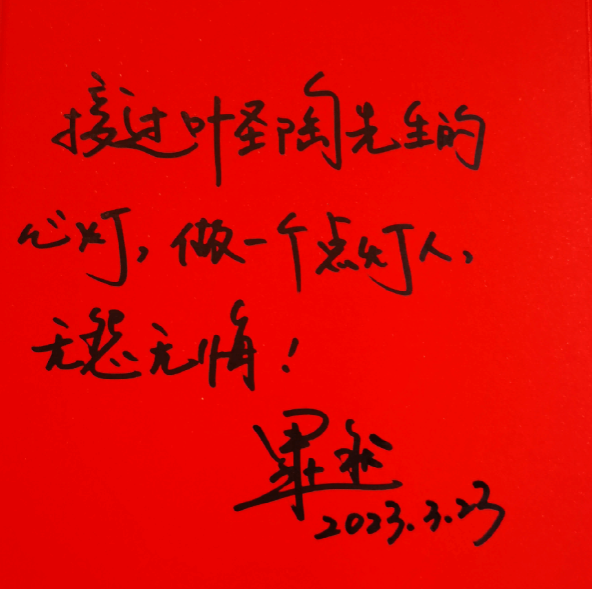 接过叶圣陶先生的
心灯，做一个点灯人，
无怨无悔！
2023.3.23